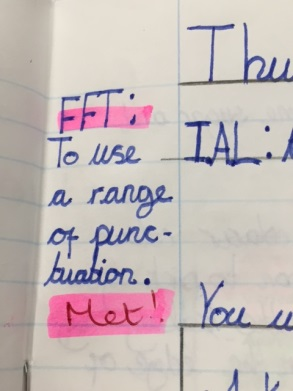 FFT:
To use
a range
of punc-
tuation.
Met!
Thu
IAL:
You